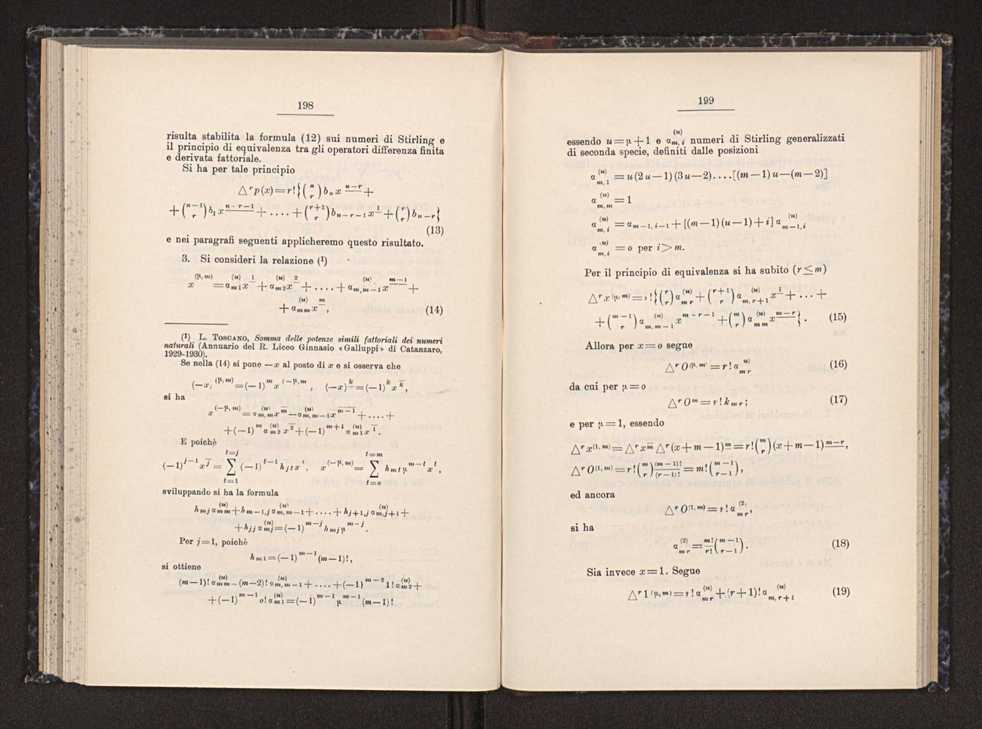 198
risulta stabilita la formula (12) sui numeri di Stirling e
il principio di equivalenza tra gli operatori differenza finita
e derivata fattoriale.
Si ha per tale principio
△^r p(x)=r!{(n r) b_o x^{n-r}+
+(n-1 r) b_1 x^{n-r-1}+....+(r+1 r) b_{n-r-1} x^1+(r r) b_{n-r}}
(13)
e nei paragrafi seguenti applicheremo questo risultato.
3. Si consideri la relazione (¹)
x^{(μ, m)} = a^{(u)}_{m1} x^1 + a^{(u)}_{m2} x^2 + .... + a^{(u)}_{m, m-1} x^{m-1} +
+ a^{(u)}_{mm} x^m, (14)
(¹) L. TOSCANO, Somma delle potenze simili fattoriali dei numeri
naturali (Annuario del R. Liceo Ginnasio «Galluppi» di Catanzaro,
1929-1930).
Se nella (14) si pone —x al posto di x e si osserva che
(—x)^{(μ, m)}=(—1)^m x^{(—μ, m)}, (—x)^k=(—1)^k x^k,
si ha
x^{(—μ, m)} = a^{(u)}_{m, m} x^m — a^{(u)}_{m, m-1} x^{m-1} +....+
+(—1)^m a^{(u)}_{m2} x^2+(—1)^{m+1} a^{(u)}_{m1} x^1.
E poichè
(—1)^{j-1} x^j = ∑_{t=1}^{t=j} (—1)^{t-1} h_{jt} x^t, x^{(—μ, m)} = ∑_{t=o}^{t=m} h_{mt} μ^{m-t} x^t,
sviluppando si ha la formula
h_{mj} a^{(u)}_{mm}+h_{m-1,j} a^{(u)}_{m, m-1}+....+h_{j+1,j} a^{(u)}_{m,j+1}+
+h_{jj} a^{(u)}_{mj}=(—1)^{m-j} h_{mj} μ^{m-j}.
Per j=1, poichè
h_{m1}=(—1)^{m-1} (m—1)!,
si ottiene
(m—1)! a^{(u)}_{mm} — (m—2)! a^{(u)}_{m, m-1} + .... + (—1)^{m-2} 1! a^{(u)}_{m2}+
+(—1)^{m-1} o! a^{(u)}_{m1}=(—1)^{m-1} μ^{m-1} (m—1)!
199
essendo u=μ+1 e a^{(u)}_{m, i} numeri di Stirling generalizzati
di seconda specie, definiti dalle posizioni
a^{(u)}_{m, 1} = u(2u—1)(3u—2)....[(m—1)u—(m—2)]
a^{(u)}_{m, m} = 1
a^{(u)}_{m, i} = a^{(u)}_{m-1, i-1} + [(m—1)(u—1)+i] a^{(u)}_{m-1, i}
a^{(u)}_{m, i} = o per i>m.
Per il principio di equivalenza si ha subito (r≤m)
△^r x^{(μ, m)}=r!{(r r) a^{(u)}_{mr} + (r+1 r) a^{(u)}_{m, r+1} x^1+...+
+(m-1 r) a^{(u)}_{m, m-1} x^{m-r-1} +(m r) a^{(u)}_{mm} x^{m-r}}. (15)
Allora per x=o segue
△^r O^{(μ, m)}=r! a^{(u)}_{mr} (16)
da cui per μ=o
△^r O^m=r! k_{mr}; (17)
e per μ=1, essendo
△^r x^{(1, m)}=△^r x^m △^r (x+m—1)^m=r!(m r)(x+m—1)^{m-r},
△^r O^{(1, m)}=r!(m r)(m—1)!/(r—1)!=m!(m-1 r-1),
ed ancora
△^r O^{(1, m)}=r! a^{(2)}_{mr},
si ha
a^{(2)}_{mr} = m!/r! (m-1 r-1). (18)
Sia invece x=1. Segue
△^r 1^{(μ, m)}=r! a^{(u)}_{mr}+(r+1)! a^{(u)}_{m, r+1} (19)